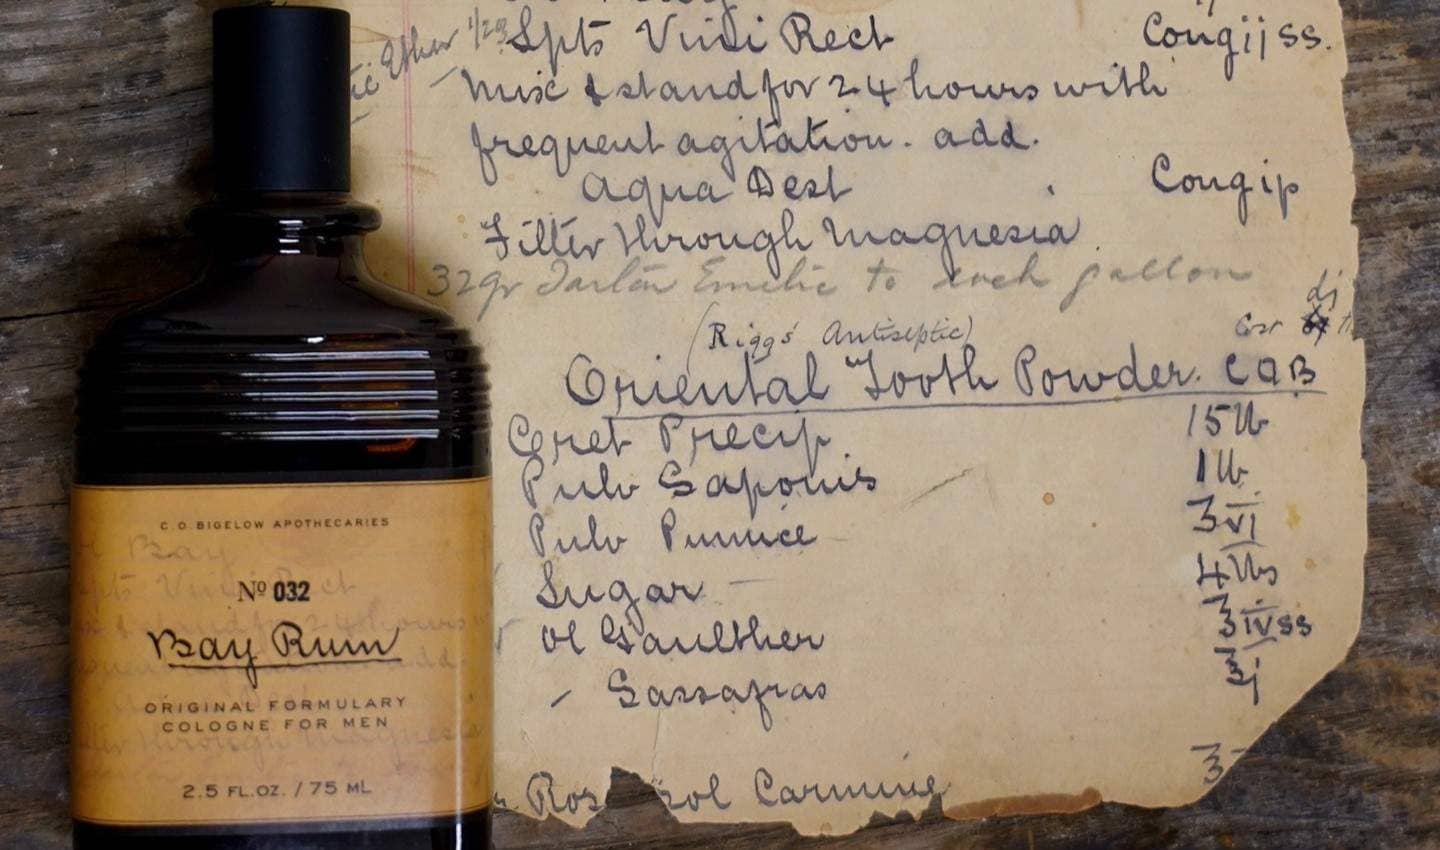 C.O. BIGELOW APOTHECARIES
Nº 032
Bay Rum
ORIGINAL FORMULARY
COLOGNE FOR MEN
2.5 FL.OZ. / 75 ML
Spts Vini Rect Congij ss.
Mix & stand for 24 hours with
frequent agitation. add.
Aqua Dest Cong ip
Filter through Magnesia
32gr Tartar Emetic to each gallon
(Riggs' Antiseptic)
Oriental Tooth Powder. C O B
Cret Precip 15 lb
Pulv Saponis 1 lb
Pulv Pumice ℥vi
Sugar — 4 lbs
Ol Gaulther ℥ivss
— Sassafras ℥j
Carmine